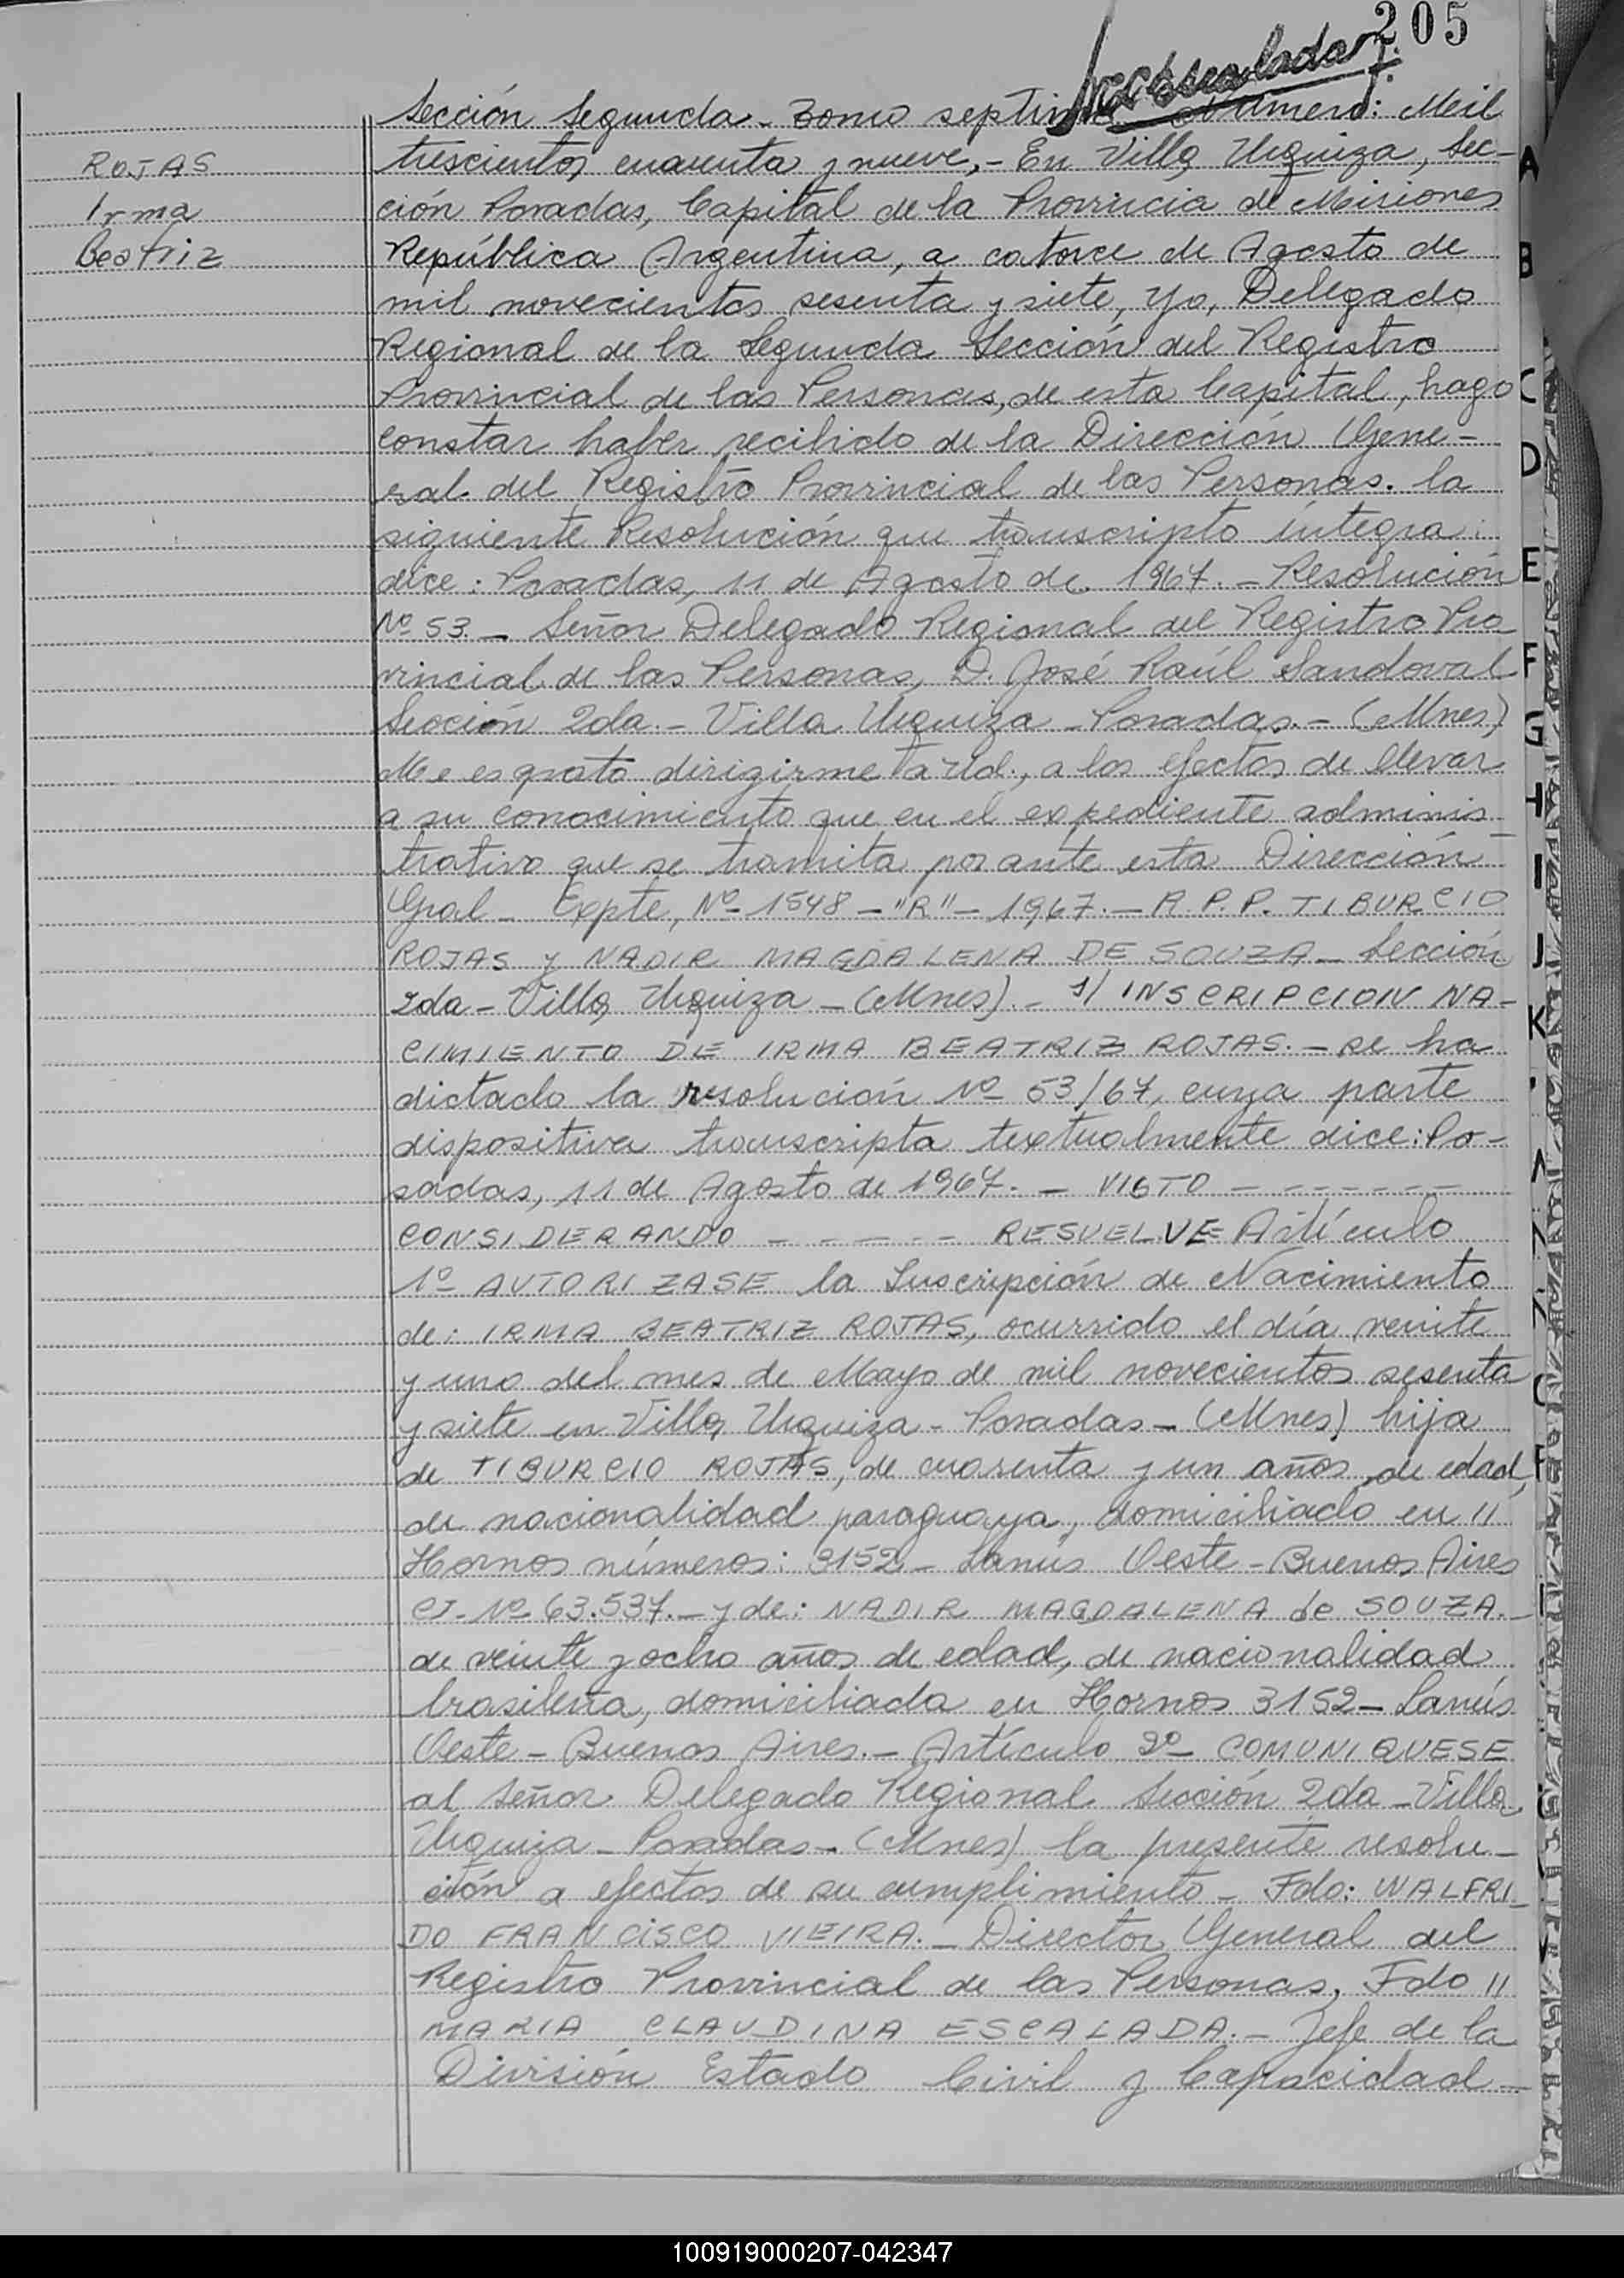 205
Sección Segunda - Tomo septimo Número: Mil
trescientos cuarenta y nueve,- En Villa Urquiza, Sec-
ROJAS
Irma
Beatriz
ción Posadas, Capital de la Provincia de Misiones
República Argentina, a catorce de Agosto de
mil novecientos sesenta y siete, yo, Delegado
Regional de la Segunda Sección del Registro
Provincial de las Personas, de esta Capital, hago
constar haber recibido de la Dirección Gene-
ral del Registro Provincial de las Personas. la
siguiente Resolución que transcripto íntegra:
dice: Posadas, 11 de Agosto de 1967.- Resolución
Nº 53.- Señor Delegado Regional del Registro Pro
vincial de las Personas, D. José Raúl Sandoval
Sección 2da.- Villa Urquiza - Posadas.- (Mnes)
Me es grato dirigirme a Ud., a los efectos de llevar
a su conocimiento que en el expediente adminis-
trativo que se tramita por ante esta Dirección
Gral - Expte, Nº 1548 - "R" - 1967.- R.P.P. TIBURCIO
ROJAS y NADIR MAGDALENA DE SOUZA - Sección
2da - Villa Urquiza - (Mnes).- s/ INSCRIPCION NA-
CIMIENTO DE IRMA BEATRIZ ROJAS.- se ha
dictado la resolución Nº 53/67, cuya parte
dispositiva transcripta textualmente dice: Po-
sadas, 11 de Agosto de 1967.- VISTO - - - - - - -
CONSIDERANDO - - - - - - RESUELVE Artículo
1º AUTORIZASE la Inscripción de Nacimiento
de: IRMA BEATRIZ ROJAS, ocurrido el día veinte
y uno del mes de Mayo de mil novecientos sesenta
y siete en Villa Urquiza - Posadas - (Mnes) hija
de TIBURCIO ROJAS, de cuarenta y un años de edad,
de nacionalidad paraguaya, domiciliado en //
Hornos números: 3152 - Lanús Oeste - Buenos Aires
CI. Nº 63.537.- y de: NADIR MAGDALENA de SOUZA.-
de veinte y ocho años de edad, de nacionalidad
brasileña, domiciliada en Hornos 3152 - Lanús
Oeste - Buenos Aires.- Artículo 2º COMUNIQUESE
al Señor Delegado Regional Sección 2da - Villa
Urquiza - Posadas - (Mnes) la presente resolu-
ción a efectos de su cumplimiento - Fdo: WALFRI-
DO FRANCISCO VIEIRA.- Director General del
Registro Provincial de las Personas, Fdo //
MARIA CLAUDINA ESCALADA.- Jefe de la
División Estado Civil y Capacidad -
A
B
C
D
E
F
G
H
I
J
K
100919000207-042347